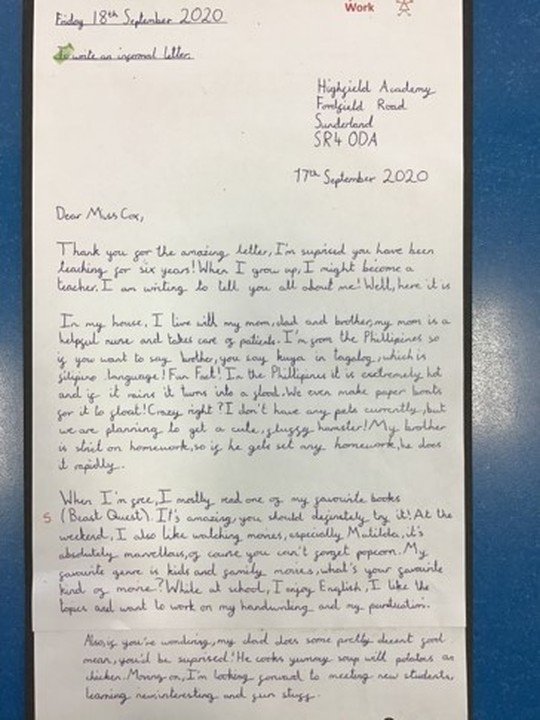 Work
Friday 18th September 2020
To write an informal letter.
Highfield Academy
Fordfield Road
Sunderland
SR4 0DA
17th September 2020
Dear Miss Cox,
Thank you for the amazing letter, I'm suprised you have been
teaching for six years! When I grow up, I might become a
teacher. I am writing to tell you all about me! Well, here it is
In my house, I live with my mom, dad and brother, my mom is a
helpful nurse and takes care of patients. I'm from the Phillipines so
if you want to say brother, you say kuya in tagalog, which is
filipino language! Fun Fact! In the Phillipines it is exetremely hot
and if it rains it turns into a flood. We even make paper boats
for it to float! Crazy right? I don't have any pets currently, but
we are planning to get a cute, fluffy hamster! My brother
is strict on homework, so if he gets set any homework, he does
it rapidly.
When I'm free, I mostly read one of my favourite books
5 (Beast Quest). It's amazing, you should definately try it! At the
weekend, I also like watching movies, especially Matilda, it's
absolutely marvellous, of course you can't forget popcorn. My
favourite genre is kids and family movies, what's your favourite
kind of movie? While at school, I enjoy English, I like the
topics and want to work on my handwriting and my puntuation.
Also, if you're wondering, my dad does some pretty decent food
mean, you'd be suprised! He cooks yummy soup with potatoes an
chicken. Moving on, I'm looking forward to meeting new students,
learning new, interesting and fun stuff.